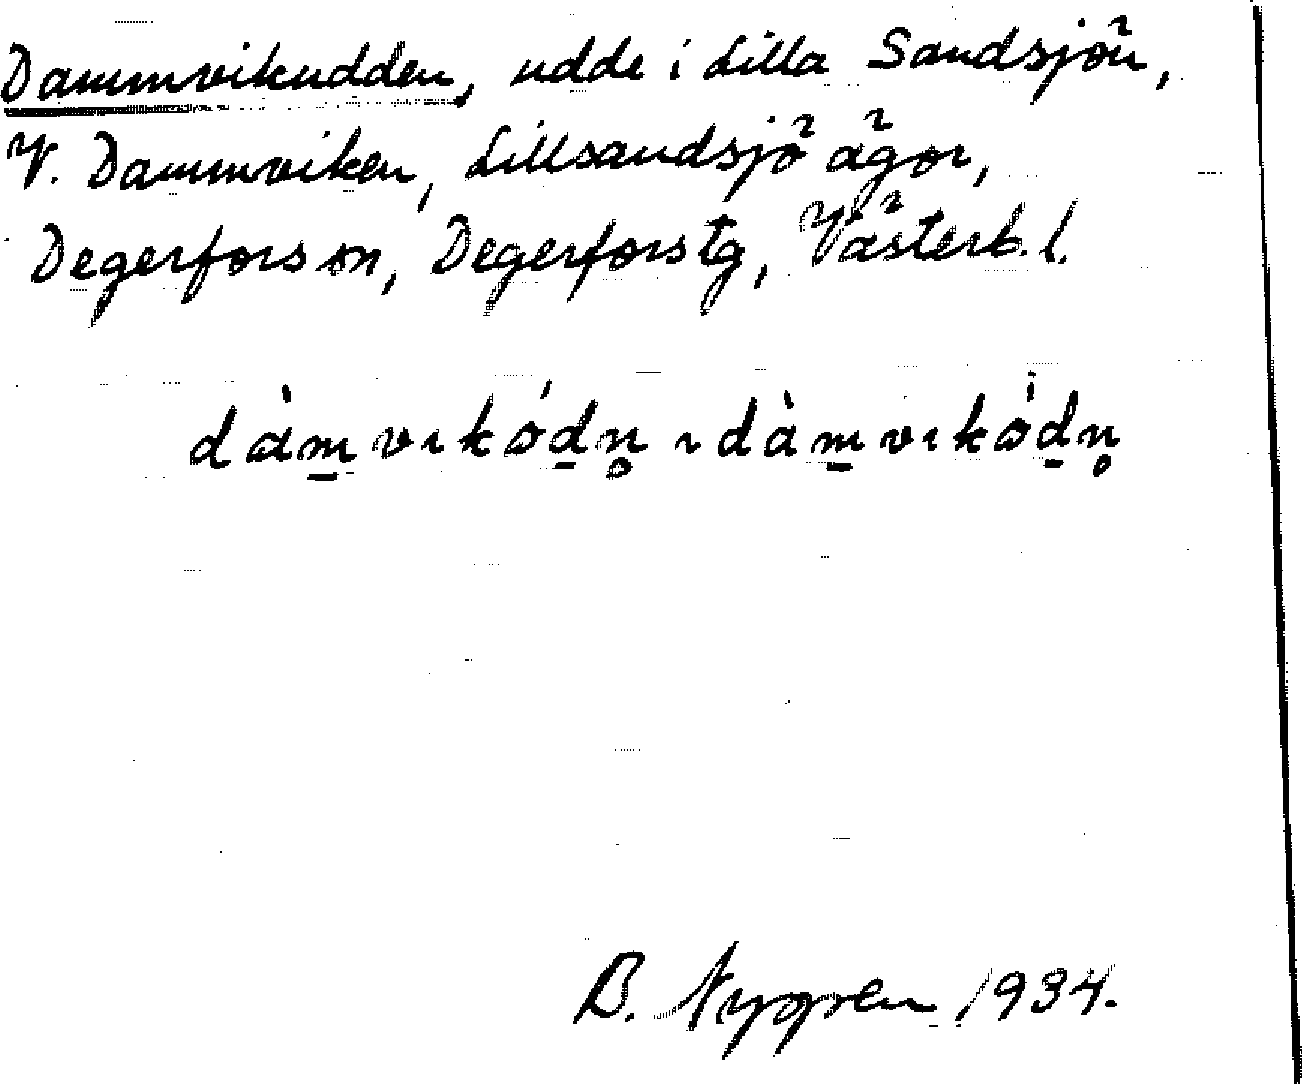 Dammvikudden, udde i Lilla Sandsjön,
V. Dammviken, Lillsandsjö ägor,
Degerfors sn, Degerfors tg, Västerb. l.
dàm̲vıkód̲n̥ ı dàm̲vıkód̲n̥
B. Nygren 1934.